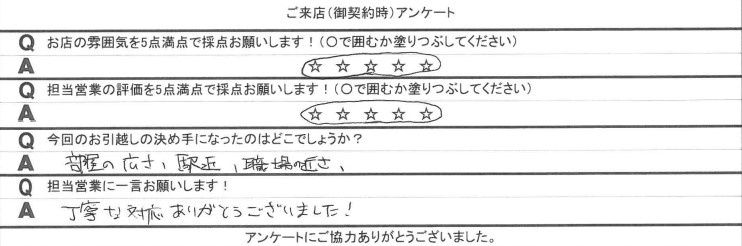 ご来店（御契約時）アンケート
Q お店の雰囲気を5点満点で採点お願いします！（〇で囲むか塗りつぶしてください）
A ☆ ☆ ☆ ☆ ☆
Q 担当営業の評価を5点満点で採点お願いします！（〇で囲むか塗りつぶしてください）
A ☆ ☆ ☆ ☆ ☆
Q 今回のお引越しの決め手になったのはどこでしょうか？
A 部屋の広さ、駅近、職場の近さ、
Q 担当営業に一言お願いします！
A 丁寧な対応ありがとうございました！
アンケートにご協力ありがとうございました。